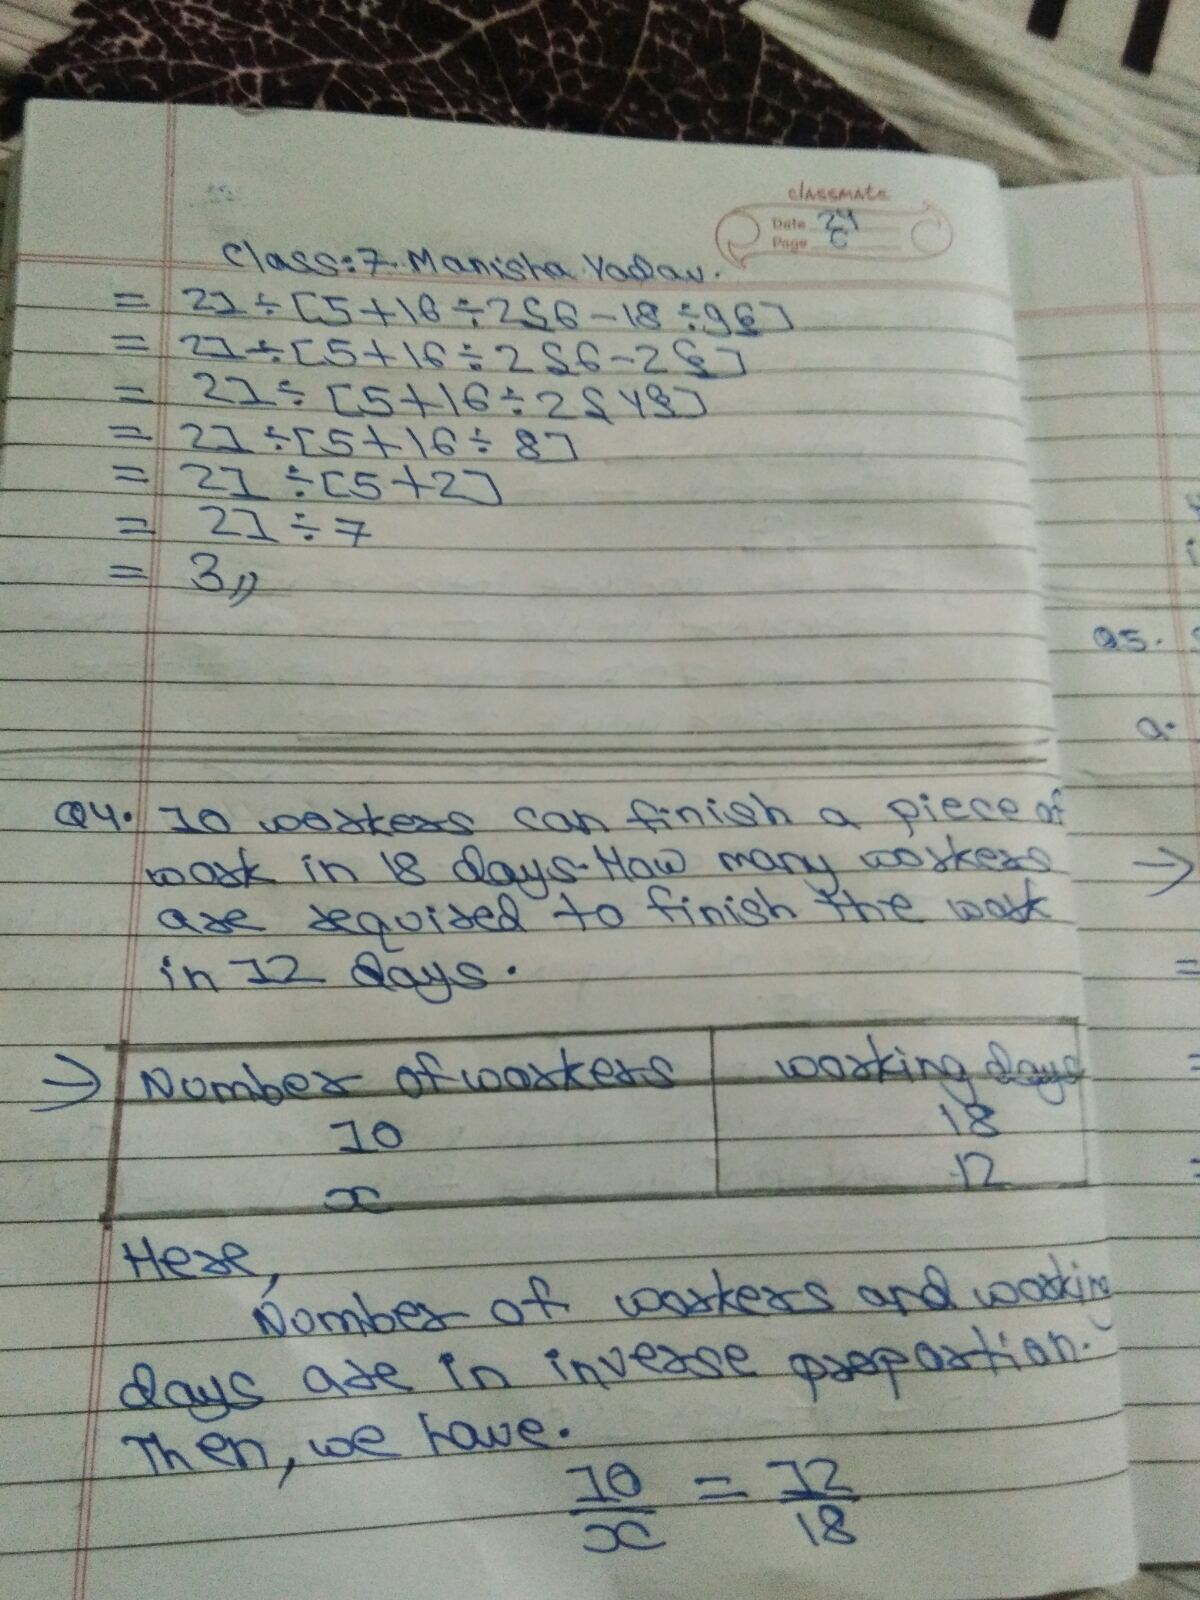 classmate
Date 24
Page 6
Class:7 Manisha Yadav.
= 21÷[5+16÷2{6-18÷9}]
= 21÷[5+16÷2{6-2}]
= 21÷[5+16÷2{4}]
= 21÷[5+16÷8]
= 21÷[5+2]
= 21÷7
= 3,,
Q4. 10 workers can finish a piece of
work in 18 days. How many workers
are required to finish the work
in 12 days.
→ Number of workers working days
10 18
x 12
Here,
Number of workers and working
days are in inverse proportion.
Then, we have.
10/x = 12/18
Q5.
a.
→
=
=
=